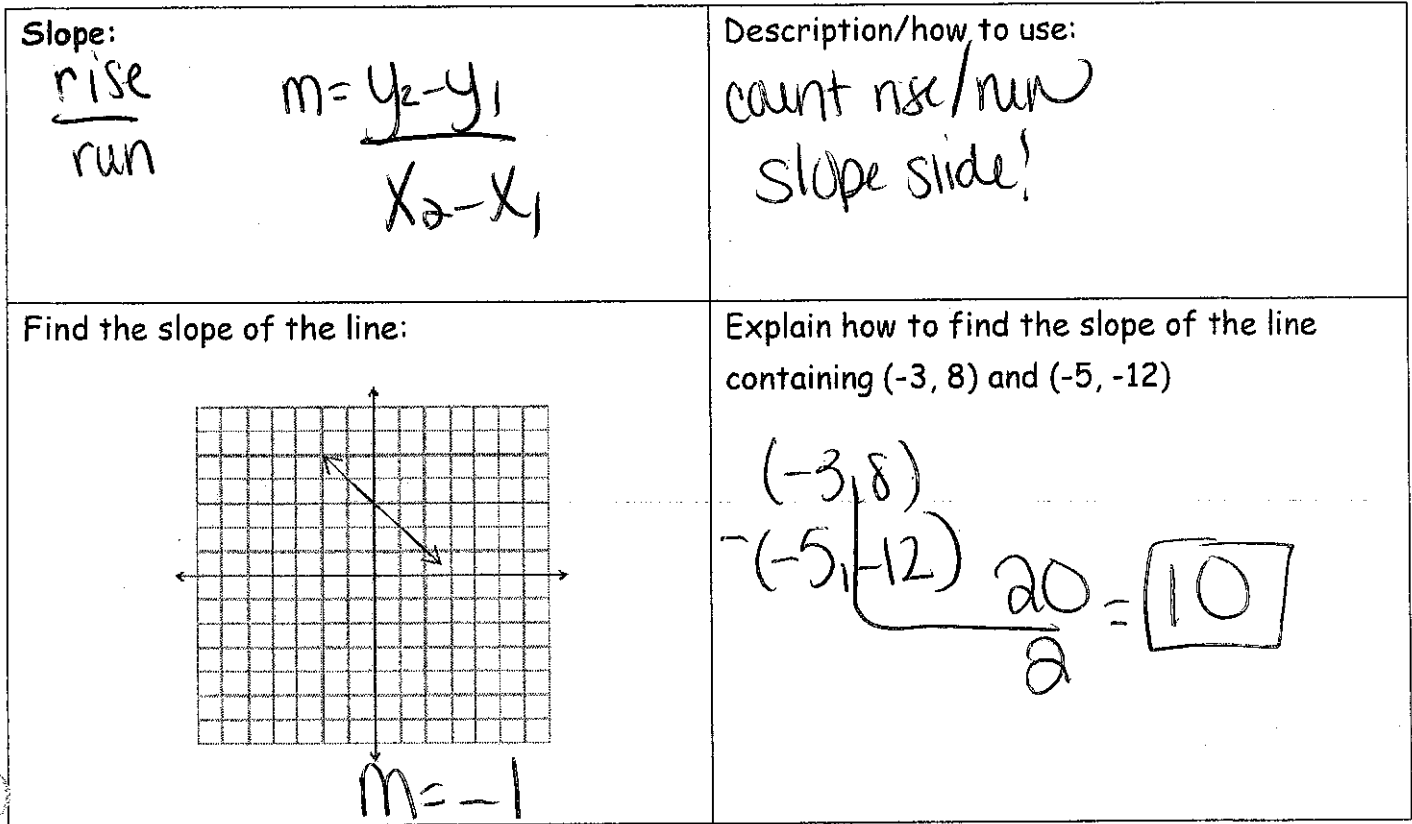 Slope:
rise
run
m = y₂-y₁
x₂-x₁
Description/how to use:
count rise/run
slope slide!
Find the slope of the line:
m = -1
Explain how to find the slope of the line
containing (-3, 8) and (-5, -12)
(-3, 8)
-(-5, -12)
20
2
= 10